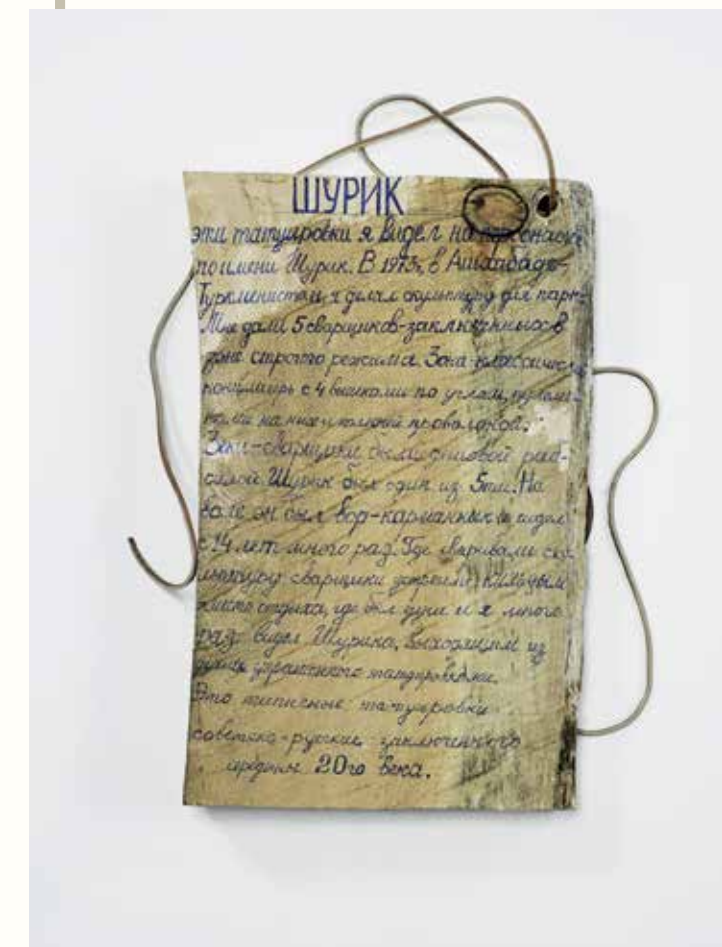 ШУРИК
эти татуировки я видел на персонаже
по имени Шурик. В 1973, в Ашхабаде-
Туркменистан, я делал скульптуру для парка.
Мне дали 5 сварщиков-заключенных в
зоне строгого режима. Зона-классический
с 4 вышками по углам,
на них и колючей проволокой.
Зеки-сварщики были раб-
силой Шурик был один из 5ти. На
воле он был вор-карманник и сидел
с 14 лет много раз. Где сваривали ску-
льптуру сварщики устроили
место отдыха, где был душ и я много
раз видел Шурика, выходящим из
душа, украшенного татуировками.
Это типисные татуировки
советско-русские заключенного
середины 20го века.